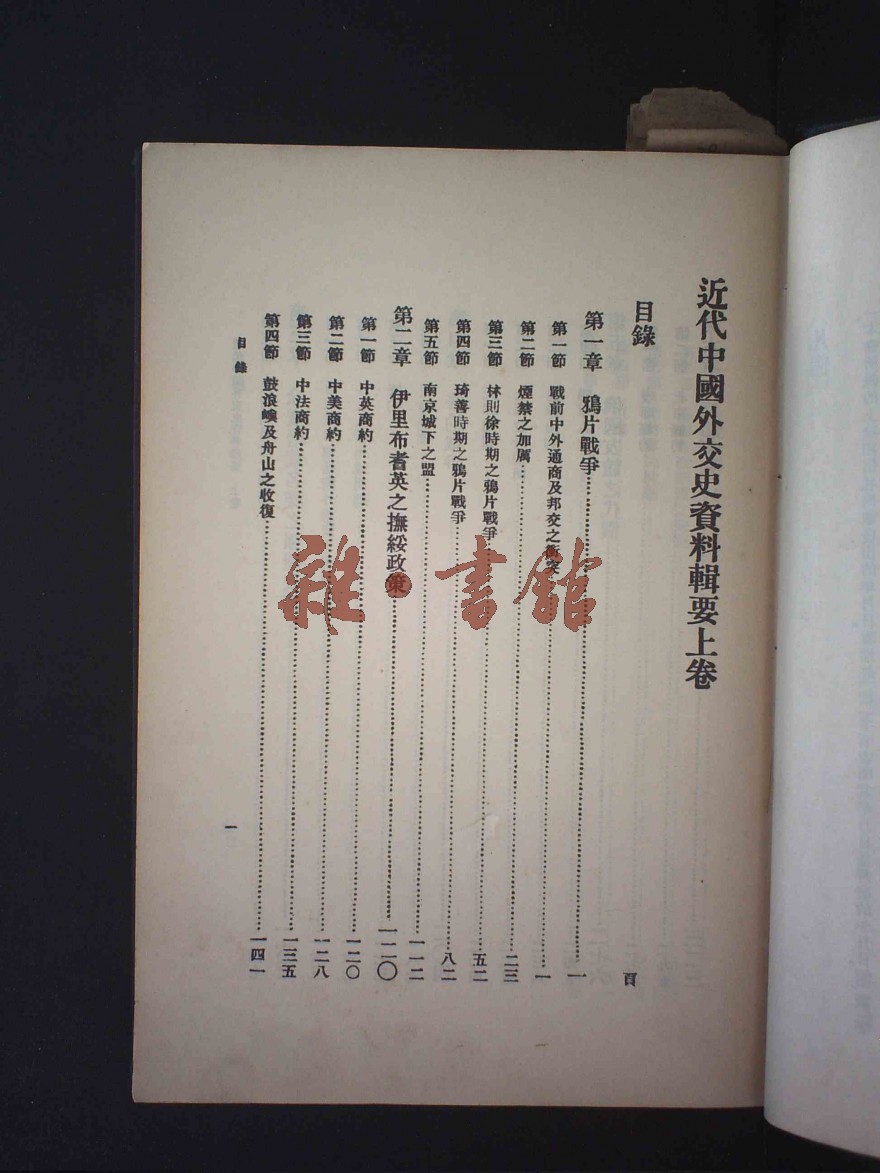 近代中國外交史資料輯要上卷
目錄
頁
第一章 鴉片戰爭……一
第一節 戰前中外通商及邦交之衝突……一
第二節 煙禁之加厲……二三
第三節 林則徐時期之鴉片戰爭……五二
第四節 琦善時期之鴉片戰爭……八二
第五節 南京城下之盟……一一二
第二章 伊里布耆英之撫綏政策……一二〇
第一節 中英商約……一二〇
第二節 中美商約……一二八
第三節 中法商約……一三五
第四節 鼓浪嶼及舟山之收復……一四一
目錄
一
雜·書館